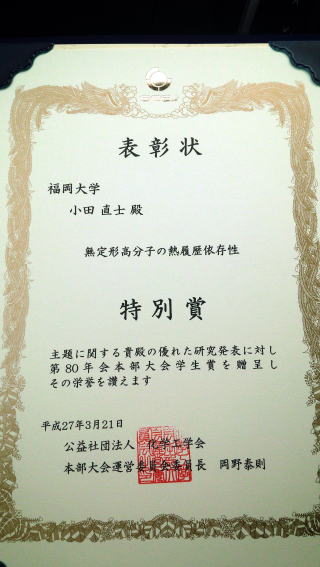 表彰状
福岡大学
小田 直士 殿
無定形高分子の熱履歴依存性
特別賞
主題に関する貴殿の優れた研究発表に対し
第80年会本部大会学生賞を贈呈し
その栄誉を讃えます
平成27年3月21日
公益社団法人 化学工学会
本部大会運営委員会委員長 岡野泰則